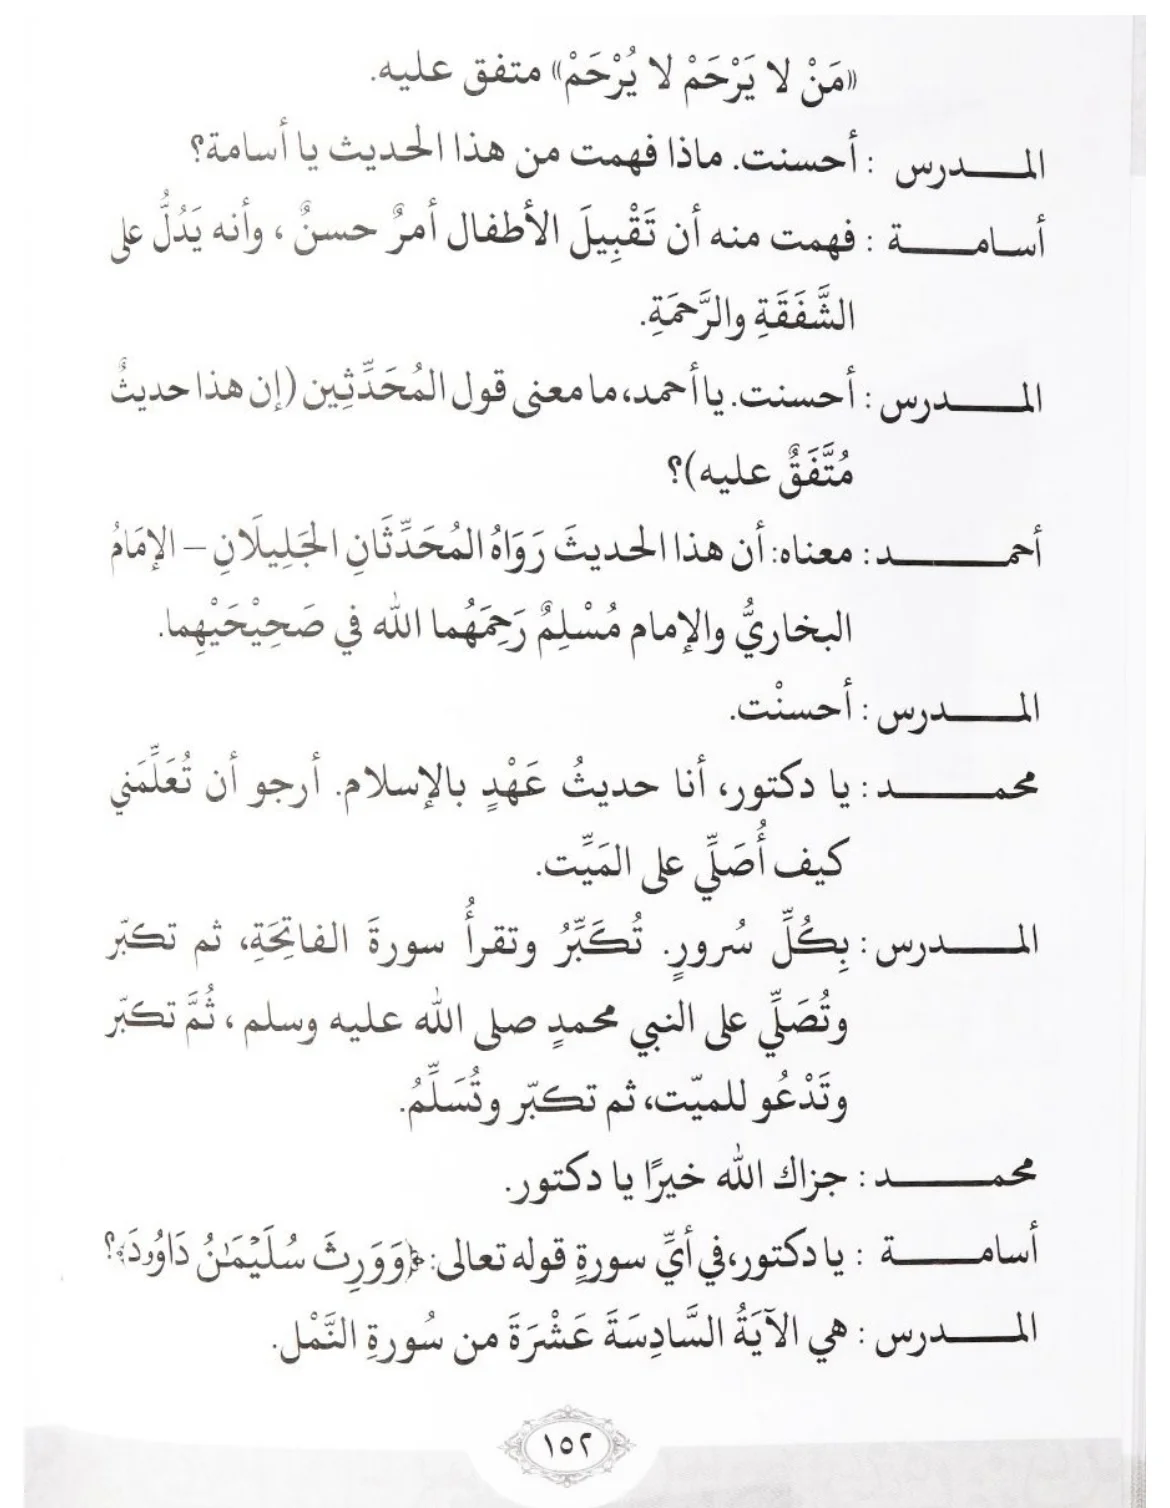 «مَنْ لا يَرْحَمْ لا يُرْحَمْ» متفق عليه.
المـــدرس : أحسنت. ماذا فهمت من هذا الحديث يا أسامة؟
أسامـــة : فهمت منه أن تَقْبِيلَ الأطفال أمرٌ حسنٌ ، وأنه يَدُلُّ على
الشَّفَقَةِ والرَّحمَةِ.
المـــدرس : أحسنت. يا أحمد، ما معنى قول المُحَدِّثِين (إن هذا حديثٌ
مُتَّفَقٌ عليه)؟
أحمـــد : معناه: أن هذا الحديثَ رَوَاهُ المُحَدِّثَانِ الجَلِيلَانِ – الإمَامُ
البخاريُّ والإمام مُسْلِمٌ رَحِمَهُما الله في صَحِيْحَيْهِما.
المـــدرس : أحسنْت.
محمـــد : يا دكتور، أنا حديثُ عَهْدٍ بالإسلام. أرجو أن تُعَلِّمَني
كيف أُصَلِّي على المَيِّت.
المـــدرس : بِكُلِّ سُرورٍ. تُكَبِّرُ وتقرأُ سورةَ الفاتِحَةِ، ثم تكبّر
وتُصَلِّي على النبي محمدٍ صلى الله عليه وسلم ، ثُمَّ تكبّر
وتَدْعُو للميّت، ثم تكبّر وتُسَلِّمُ.
محمـــد : جزاك الله خيرًا يا دكتور.
أسامـــة : يا دكتور، في أيِّ سورةٍ قوله تعالى: ﴿وَوَرِثَ سُلَيْمَـٰنُ دَاوُۥدَ﴾؟
المـــدرس : هي الآيَةُ السَّادِسَةَ عَشْرَةَ من سُورةِ النَّمْل.
١٥٢